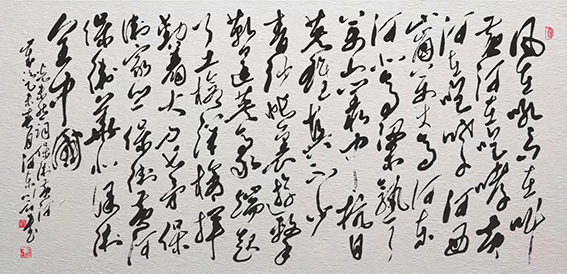 风在吼马在叫
黄河在咆哮黄
河在咆哮河西
山岗万丈高河东
河北高粱熟了
万山丛中抗日
英雄真不少
青纱帐里游击
健儿逞英豪端起
了土枪洋枪挥
动着大刀长矛保
衛家乡保衛黄河
保衛華北保衛
全中國
光未然词保衛黄河
乙未春月河东